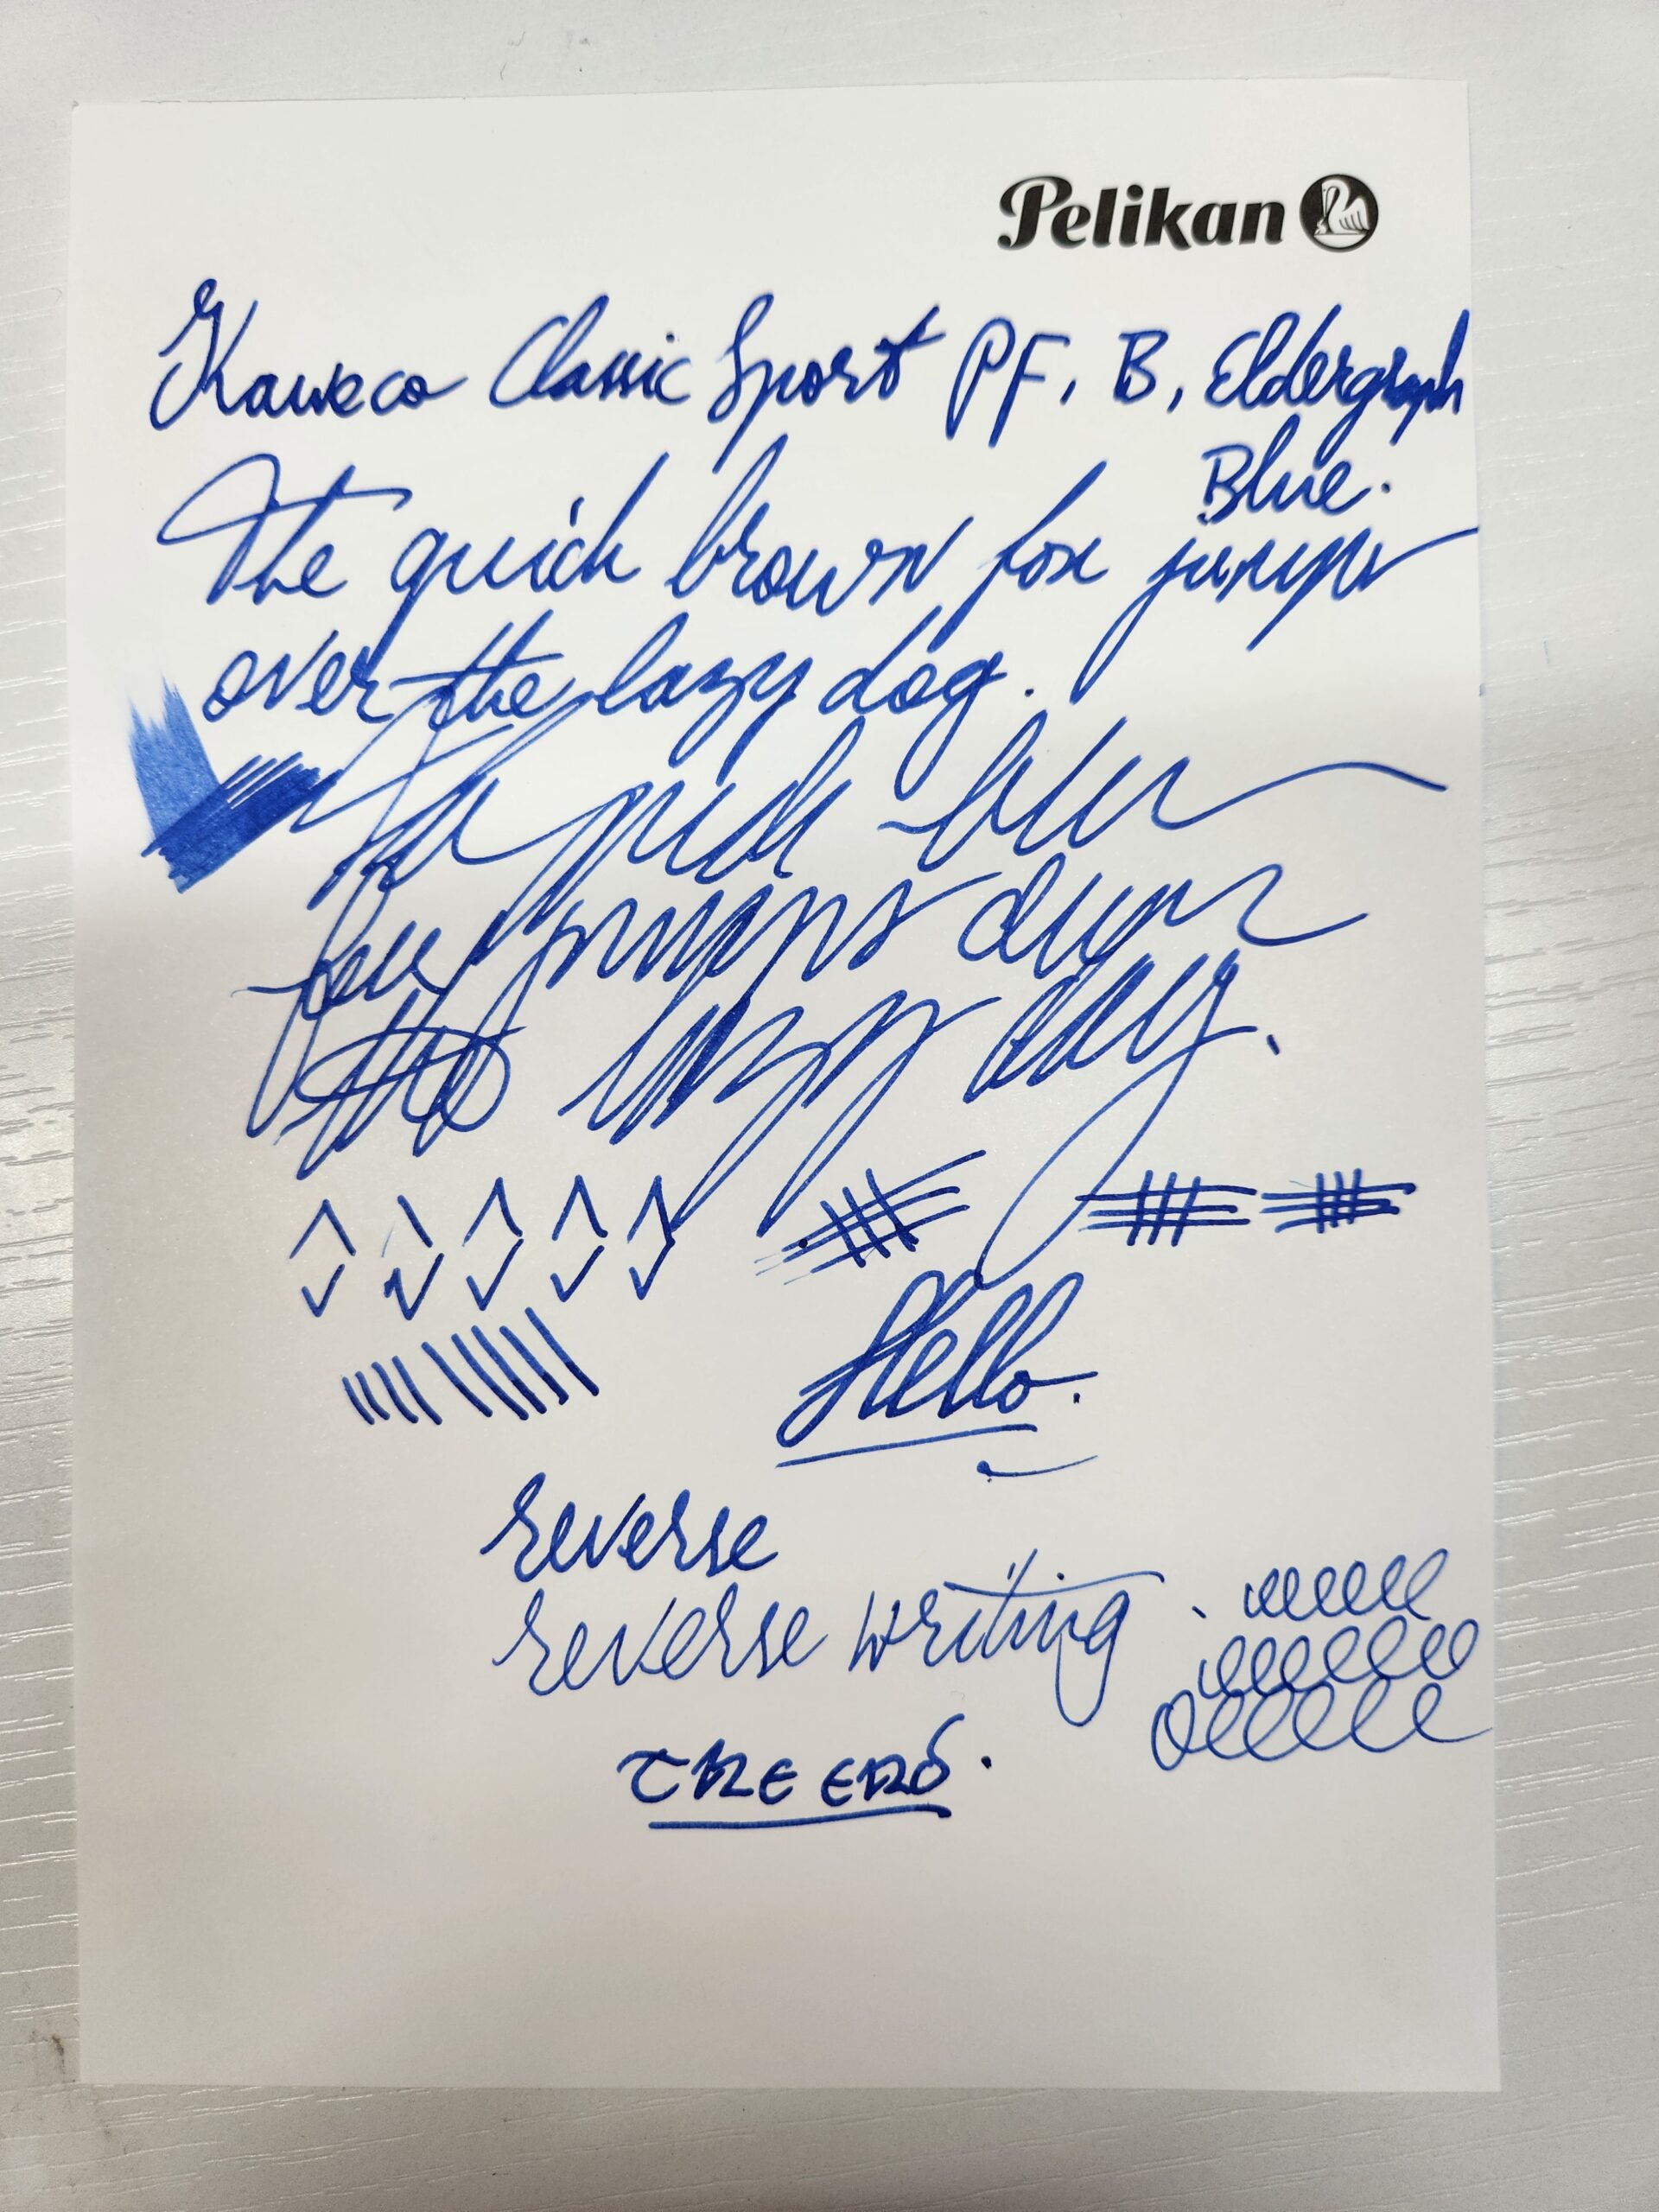 Pelikan
Kaweco Classic Sport PF, B, Eldergraph
Blue.
The quick brown fox jumps
over the lazy dog.
jumps
the lazy
Hello.
reverse
reverse writing.
THE END.